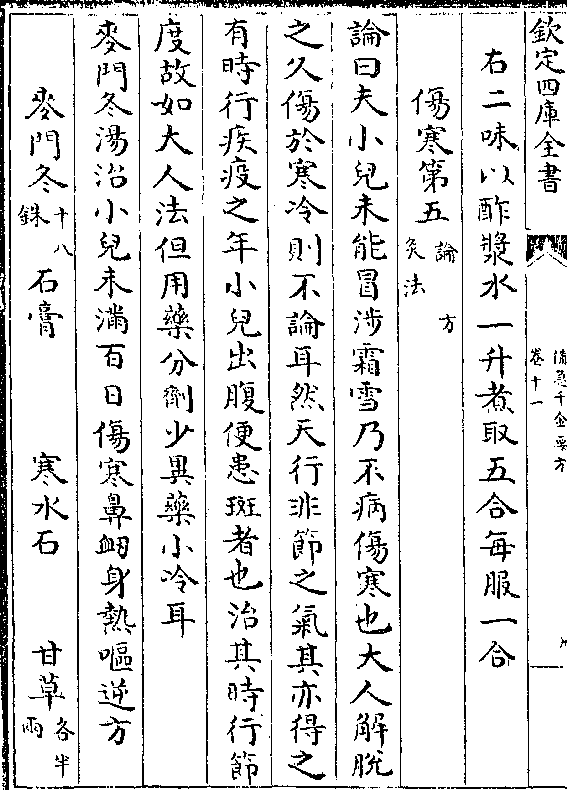 欽定四庫全書
備急千金要方
卷十一
右二味以酢漿水一升煮取五合每服一合
傷寒第五
論
方
灸法
論曰夫小兒未能冒涉霜雪乃不病傷寒也大人解脫
之久傷於寒冷則不論耳然天行非節之氣其亦得之
有時行疾疫之年小兒出腹便患斑者也治其時行節
度故如大人法但用藥分劑少異藥小冷耳
麥門冬湯治小兒未滿百日傷寒鼻衂身熱嘔逆方
麥門冬十八銖 石膏 寒水石 甘草各半兩